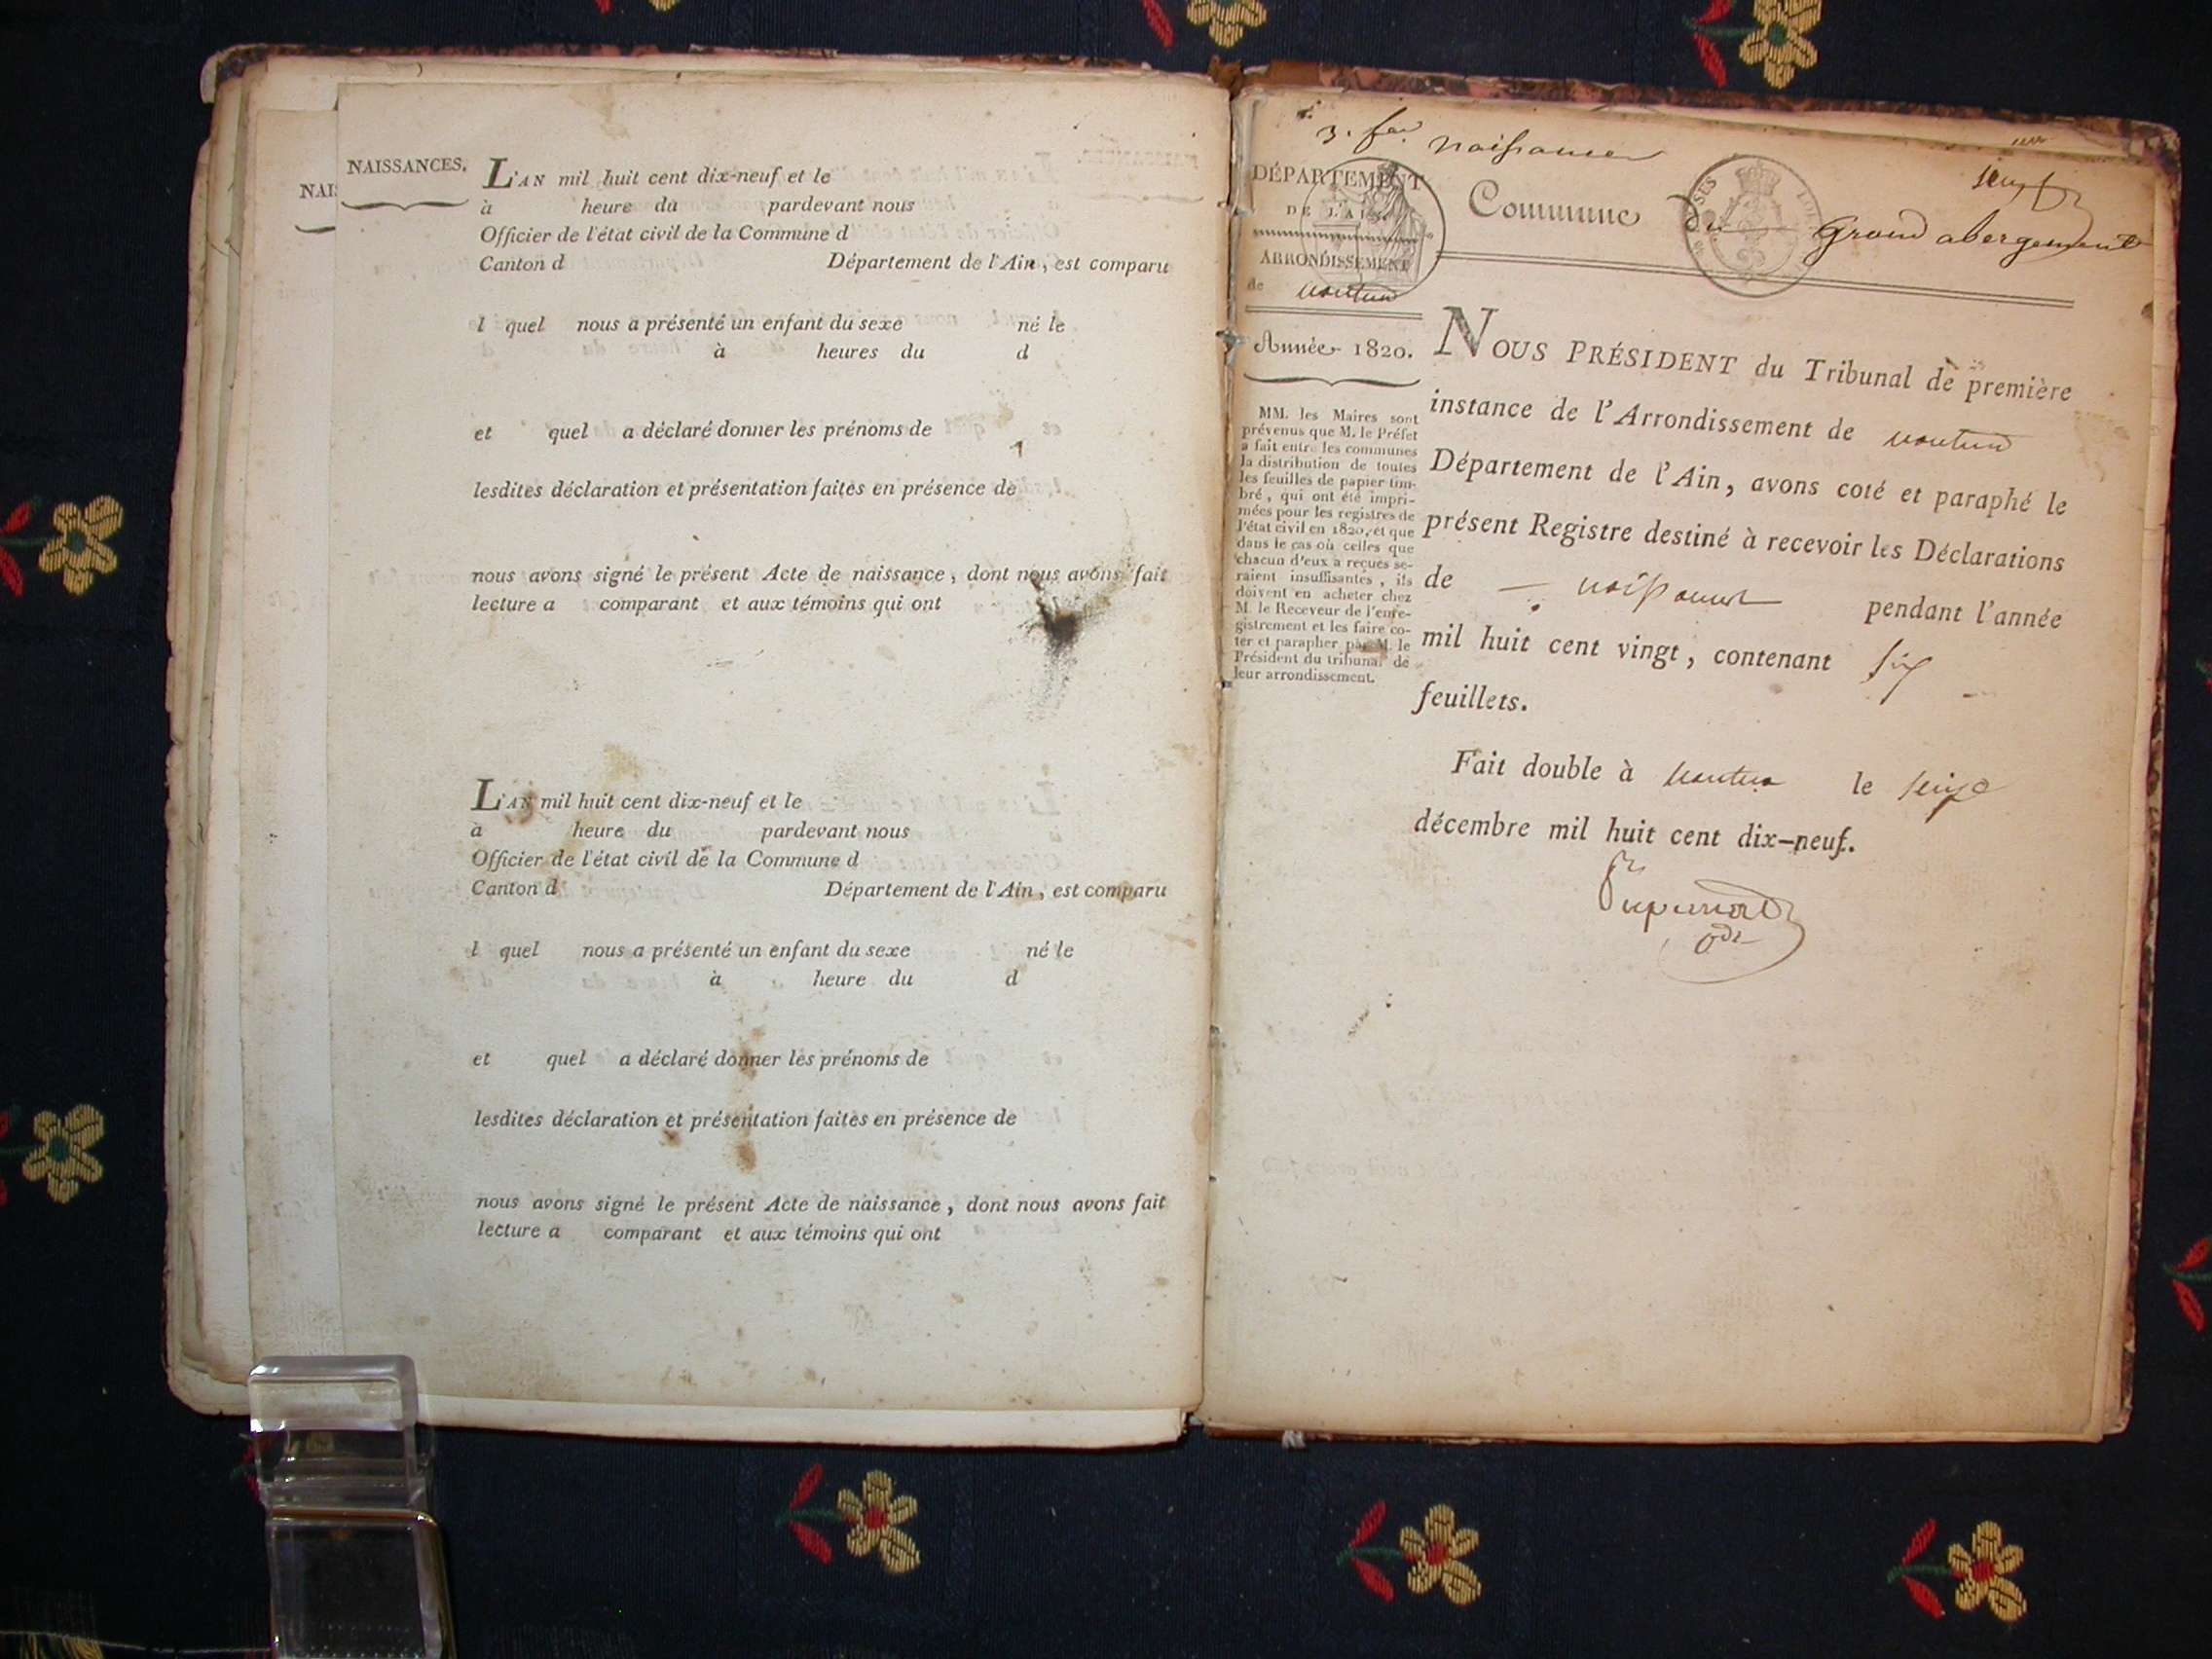 NAISSANCES.
NAIS
L'AN mil huit cent dix-neuf et le
à heure du pardevant nous
Officier de l'état civil de la Commune d
Canton d Département de l'Ain, est comparu
l quel nous a présenté un enfant du sexe né le
à heures du d
et quel a déclaré donner les prénoms de
lesdites déclaration et présentation faites en présence de
nous avons signé le présent Acte de naissance, dont nous avons fait
lecture a comparant et aux témoins qui ont
L'AN mil huit cent dix-neuf et le
à heure du pardevant nous
Officier de l'état civil de la Commune d
Canton d Département de l'Ain, est comparu
l quel nous a présenté un enfant du sexe né le
à heure du d
et quel a déclaré donner les prénoms de
lesdites déclaration et présentation faites en présence de
nous avons signé le présent Acte de naissance, dont nous avons fait
lecture a comparant et aux témoins qui ont
naissances
DÉPARTEMENT
DE L'AIN
ARRONDISSEMENT
de nantua
Commune du grand abergement
Année 1820.
MM. les Maires sont
prévenus que M. le Préfet
a fait entre les communes
la distribution de toutes
les feuilles de papier tim-
bré, qui ont été impri-
mées pour les registres de
l'état civil en 1820, et que
dans le cas où celles que
chacun d'eux a reçues se-
raient insuffisantes, ils
doivent en acheter chez
M. le Receveur de l'enre-
gistrement et les faire co-
ter et parapher par M. le
Président du tribunal de
leur arrondissement.
NOUS PRÉSIDENT du Tribunal de première
instance de l'Arrondissement de nantua
Département de l'Ain, avons coté et paraphé le
présent Registre destiné à recevoir les Déclarations
de naissances pendant l'année
mil huit cent vingt, contenant six
feuillets.
Fait double à nantua le seize
décembre mil huit cent dix-neuf.